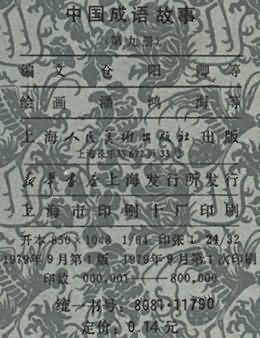 中国成语故事
(第九册)
编文 仓阳卿等
绘画 潘鸿海等
上海人民美术出版社出版
上海长乐路672弄33号
新华书店上海发行所发行
上海市印刷十厂印刷
开本 850×1008 1/64 印张: 24/32
1979年9月第1版 1979年9月第1次印刷
印数 000,001——800,000
统一书号: 8081·11790
定价: 0.14元